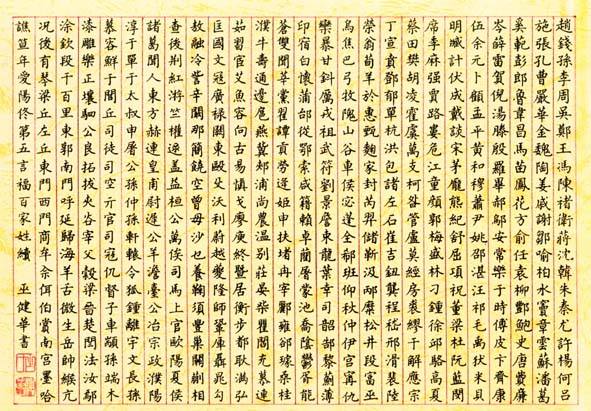 趙錢孫李周吳鄭王馮陳褚衛蔣沈韓朱秦尤許楊何呂
施張孔曹嚴華金魏陶姜戚謝鄒喻柏水竇章雲蘇潘葛
奚範彭郎魯韋昌馬苗鳳花方俞任袁柳酆鮑史唐費廉
岑薛雷賀倪湯滕殷羅畢郝鄔安常樂于時傅皮卞齊康
伍余元卜顧孟平黃和穆蕭尹姚邵湛汪祁毛禹狄米貝
明臧計伏成戴談宋茅龐熊紀舒屈項祝董梁杜阮藍閔
席季麻强賈路婁危江童顏郭梅盛林刁鍾徐邱駱高夏
蔡田樊胡凌霍虞萬支柯昝管盧莫經房裘繆干解應宗
丁宣賁鄧郁單杭洪包諸左石崔吉鈕龔程嵇邢滑裴陸
榮翁荀羊於惠甄麴家封芮羿儲靳汲邴糜松井段富巫
烏焦巴弓牧隗山谷車侯宓蓬全郗班仰秋仲伊宮甯仇
欒暴甘鈄厲戎祖武符劉景詹束龍葉幸司韶郜黎薊薄
印宿白懷蒲邰從鄂索咸籍賴卓藺屠蒙池喬陰鬱胥能
蒼雙聞莘黨翟譚貢勞逄姬申扶堵冉宰酈雍郤璩桑桂
濮牛壽通邊扈燕冀郟浦尚農溫別莊晏柴瞿閻充慕連
茹習宦艾魚容向古易慎戈廖庾終暨居衡步都耿滿弘
匡國文寇廣祿闕東歐殳沃利蔚越夔隆師鞏厙聶晁勾
敖融冷訾辛闞那簡饒空曾毋沙乜養鞠須豐巢關蒯相
查後荊紅游竺權逯蓋益桓公萬俟司馬上官歐陽夏侯
諸葛聞人東方赫連皇甫尉遲公羊澹臺公冶宗政濮陽
淳于單于太叔申屠公孫仲孫軒轅令狐鍾離宇文長孫
慕容鮮于閭丘司徒司空亓官司寇仉督子車顓孫端木
漆雕樂正壤駟公良拓拔夾谷宰父穀梁晉楚閆法汝鄢
涂欽段干百里東郭南門呼延歸海羊舌微生岳帥緱亢
況後有琴梁丘左丘東門西門商牟佘佴伯賞南宮墨哈
譙笪年愛陽佟第五言福百家姓續 巫健華書